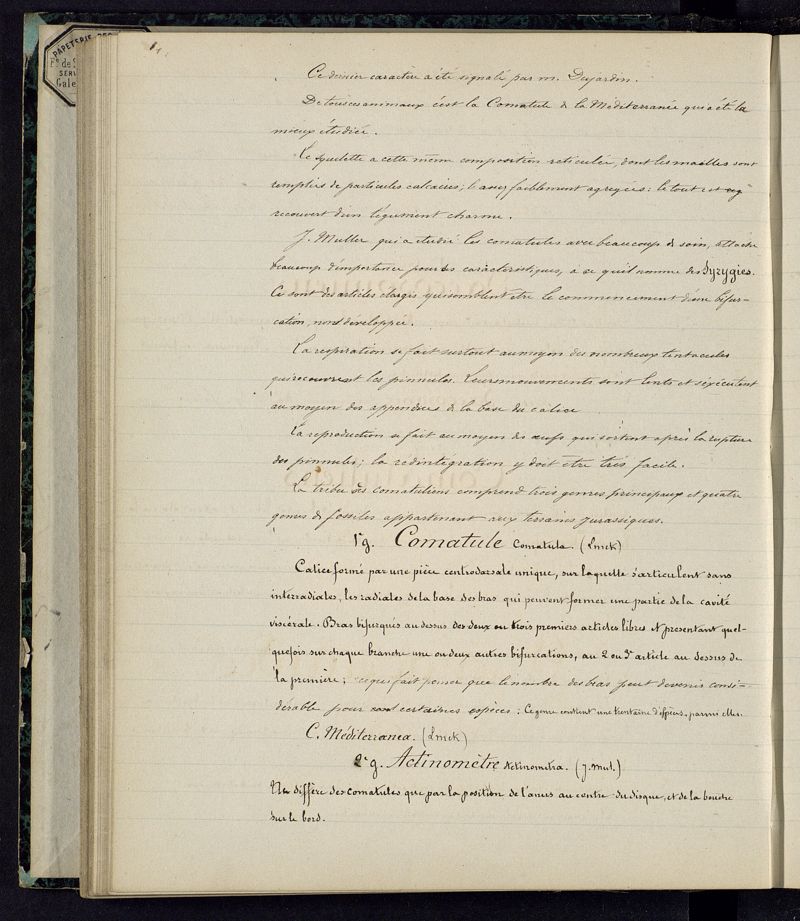 PAPETERIE
Fg de S
SERV
Gale
Ce dernier caractère a été signalé par m. Dujardin.
De tous ces animaux c'est la Comatule de la Méditerranée qui a été la
mieux étudiée.
Le squelette a cette même composition reticulée, dont les mailles sont
remplies de particules calcaires; assez faiblement agregées: le tout est
recouvert d'un tégument charnu.
J. Muller qui a étudié les comatules avec beaucoup de soin, attache
beaucoup d'importance pour les caractéristiques, a ce qu'il nomme des Syzygies.
Ce sont des articles élargis qui semblent etre le commencement d'une bifur-
cation, non développée.
La respiration se fait surtout au moyen des nombreux tentacules
qui recouvrent les pinnules. Leurs mouvements sont lents et s'exécutent
au moyen des appendices de la base du calice
La reproduction se fait au moyen des œufs qui sortent après la rupture
des pinnules; la rédintégration y doit être très facile.
La tribu des comatuliens comprend trois genres principaux et quatre
genres de fossiles appartenant aux terrains jurassiques.
1r g. Comatule Comatula. (Lmck)
Calice formé par une pièce centrodorsale unique, sur laquelle s'articulent sans
interradiales, les radiales de la base des bras qui peuvent former une partie de la cavité
viscérale. Bras bifurqués au dessus des deux ou trois premiers articles libres et présentant quel-
quefois sur chaque branche une ou deux autres bifurcations, au 2 ou 3e article au dessus de
la première; ce qui fait penser que le nombre des bras peut devenir consi-
dérable pour certaines espèces. Ce genre contient une trentaine d'espèces, parmi elles.
C. Méditerranea. (Lmck)
2e g. Actinomètre Actinometra. (J. Mul.)
Ne diffère des comatules que par la position de l'anus au centre du disque, et de la bouche
sur le bord.